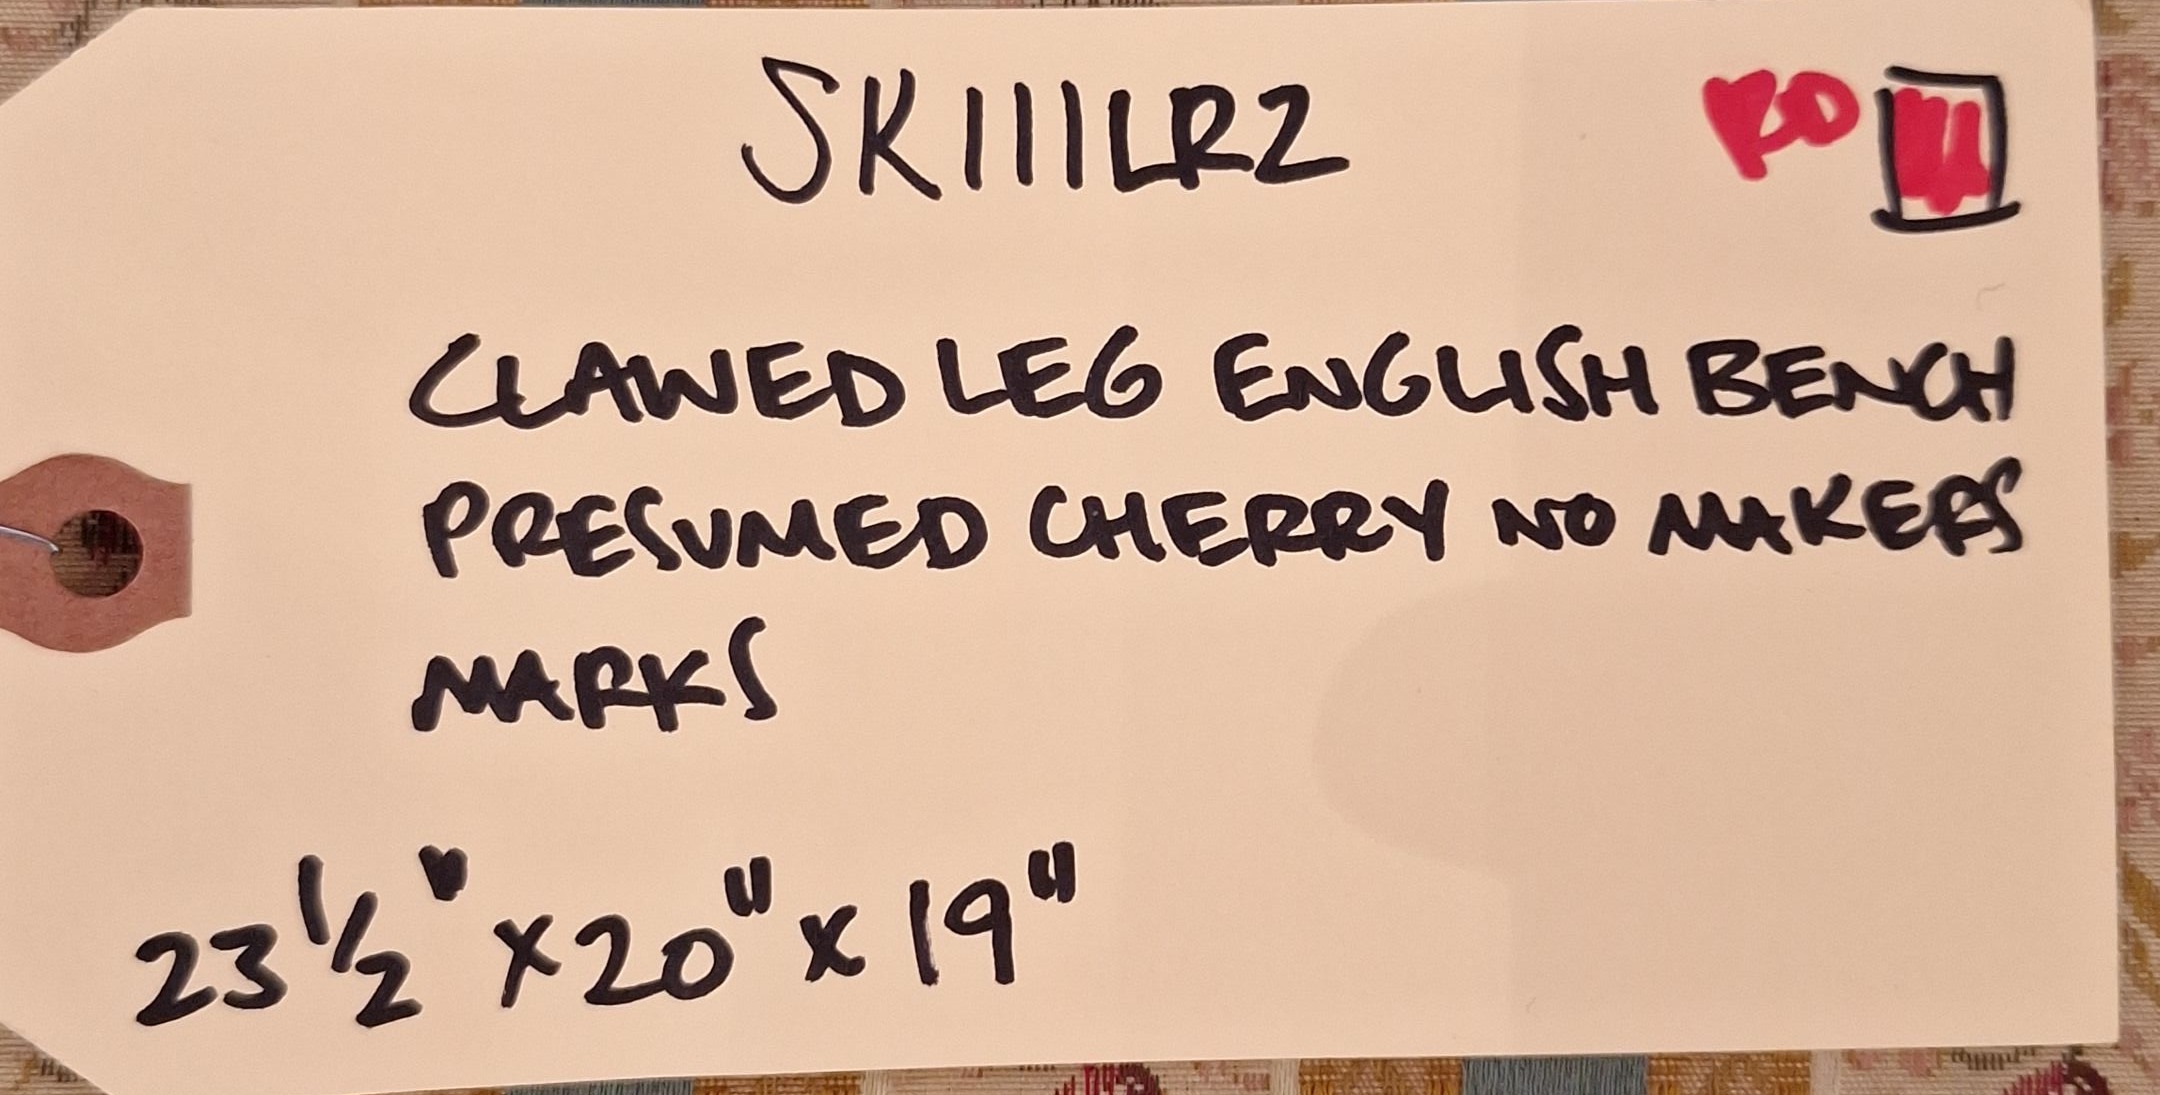 SK111LR2
CLAWED LEG ENGLISH BENCH
PRESUMED CHERRY NO MAKERS
MARKS
23 1/2" x 20" x 19"